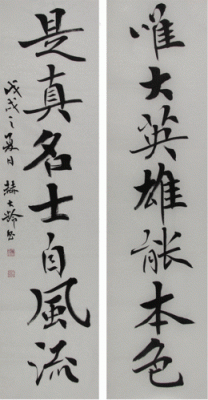 唯大英雄能本色
是真名士自風流
戊戌之夏日 赫大齡書